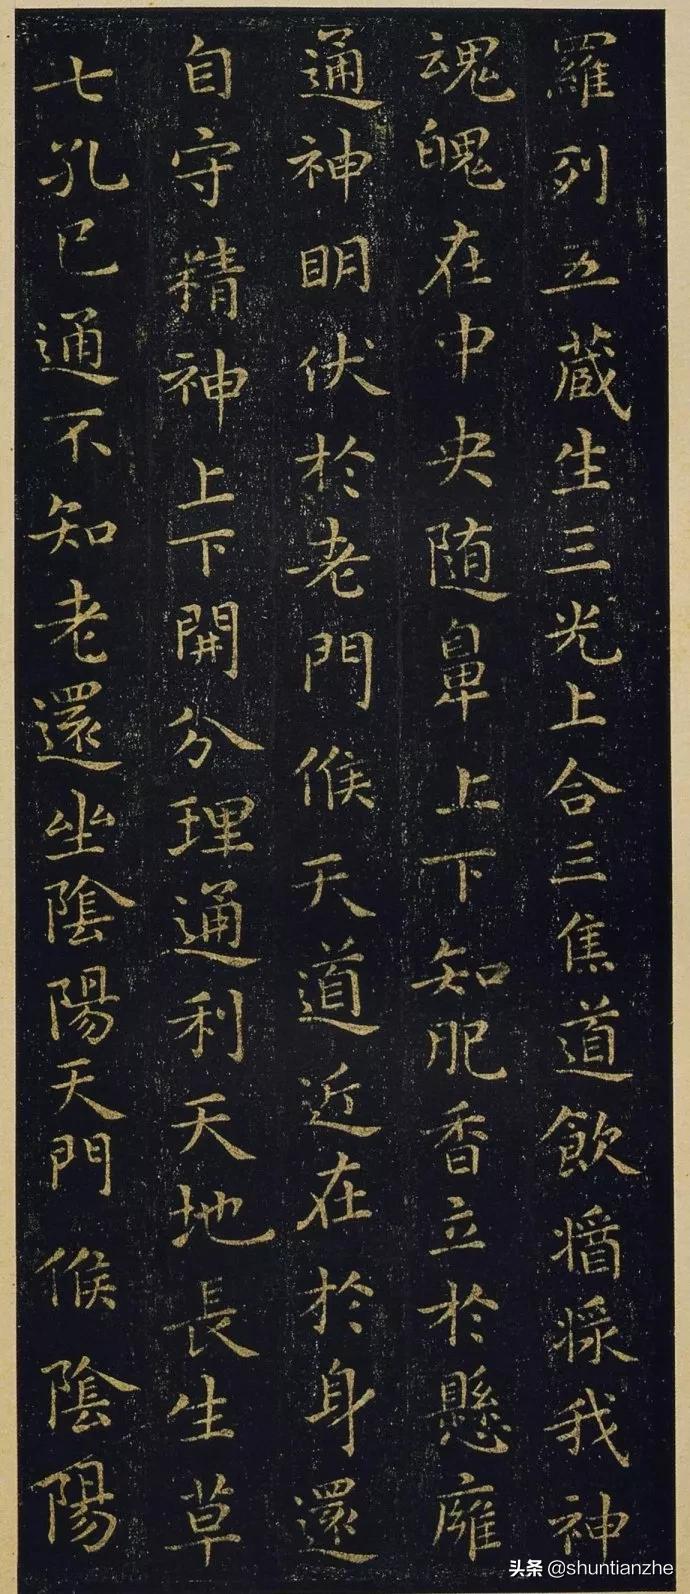 羅列五蔵生三光上合三焦道飲醬將我神
魂魄在中央随鼻上下知肥香立於懸廱
通神明伏於老門候天道近在於身還
自守精神上下開分理通利天地長生草
七孔已通不知老還坐陰陽天門候陰陽
头条 @shuntianzhe